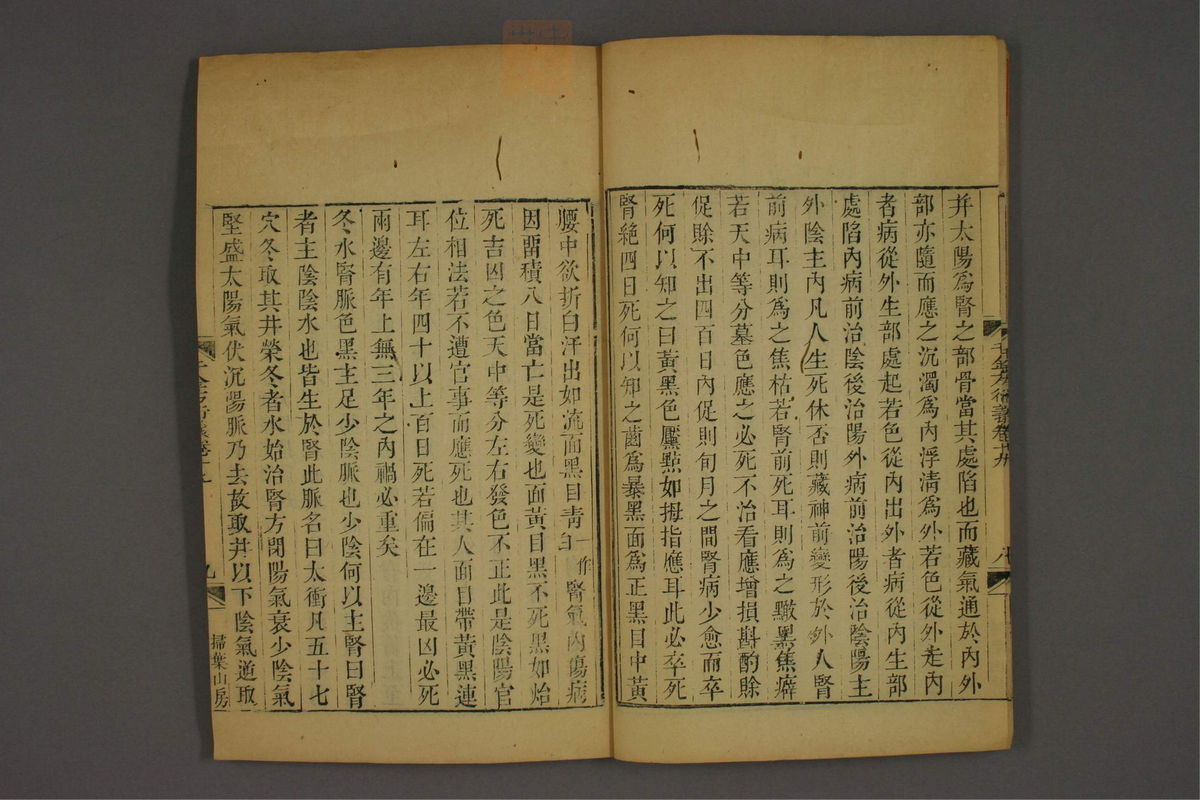 并太陽爲腎之部骨當其處陷也而藏氣通於內外
部亦隨而應之沉濁爲內浮清爲外若色從外走內
者病從外生部處起若色從內出外者病從內生部
處陷內病前治陰後治陽外病前治陽後治陰陽主
外陰主內凡人生死休否則藏神前變形於外人腎
前病耳則爲之焦枯若腎前死耳則爲之黤黑焦癖
若天中等分墓色應之必死不治看應增損斟酌賒
促賒不出四百日內促則旬月之間腎病少愈而卒
死何以知之曰黃黑色黶點如拇指應耳此必卒死
腎絶四日死何以知之齒爲暴黑面爲正黑目中黃
腰中欲折白汗出如流面黑目青一作腎氣內傷病
因留積八日當亡是死變也面黃目黑不死黑如炲
死吉凶之色天中等分左右發色不正此是陰陽官
位相法若不遭官事而應死也其人面目帶黃黑連
耳左右年四十以上百日死若偏在一邊最凶必死
兩邊有年上無三年之內禍必重矣
冬水腎脈色黑主足少陰脈也少陰何以主腎曰腎
者主陰陰水也皆生於腎此脈名曰太衝凡五十七
穴冬取其井榮冬者水始治腎方閉陽氣衰少陰氣
堅盛太陽氣伏沉陽脈乃去故取井以下陰氣逆取
九
掃葉山房